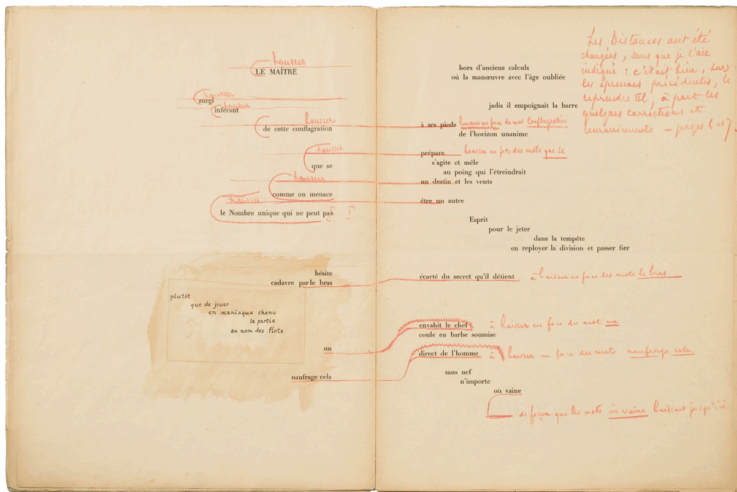 hausser
LE MAÎTRE
hausser
surgi
hausser
inférant
hausser
de cette conflagration
hausser
que se
hausser
comme on menace
hausser
le Nombre unique qui ne peut pas
hésite
cadavre par le bras
plutôt
que de jouer
en maniaque chenu
la partie
au nom des flots
un
naufrage cela
hors d'anciens calculs
où la manœuvre avec l'âge oubliée
jadis il empoignait la barre
à ses pieds
de l'horizon unanime
prépare
s'agite et mêle
au poing qui l'étreindrait
un destin et les vents
être un autre
Esprit
pour le jeter
dans la tempête
en reployer la division et passer fier
écarté du secret qu'il détient à hausser en face des mots le bras
envahit le chef à hausser en face du mot un
coule en barbe soumise
direct de l'homme à hausser en face des mots naufrage cela
sans nef
n'importe
où vaine
de façon que les mots où vaine
Les Distances ont été
changées, sans que je l'aie
indiqué : c'était bien, sur
les épreuves précédentes, le
reprendre tel, à part les
quelques corrections et